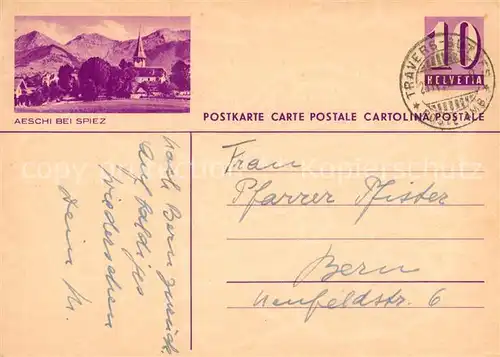 AESCHI BEI SPIEZ
10
HELVETIA
TRAVERS-BUTTES
POSTKARTE CARTE POSTALE CARTOLINA POSTALE
nach Bern zurück.
Auf baldiges
Wiedersehen
Dein
Frau
Pfarrer Pfister
Bern
Neufeldstr. 6